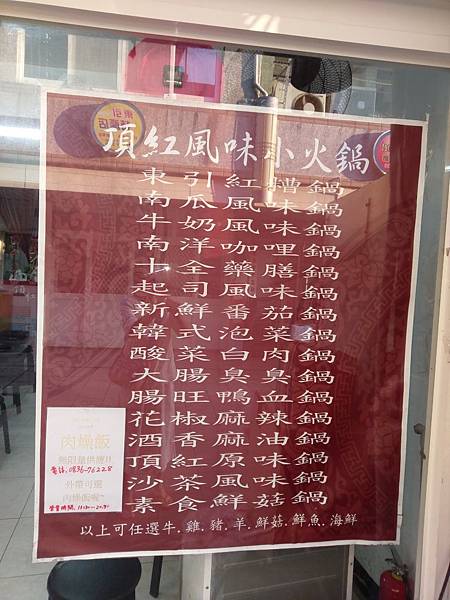 東引
頂紅風味小火鍋
東引紅糟鍋
南瓜風味鍋
牛奶風味鍋
南洋咖哩鍋
十全藥膳鍋
起司風味鍋
新鮮番茄鍋
韓式泡菜鍋
酸菜白肉鍋
大腸臭臭鍋
腸旺鴨血鍋
花椒麻辣鍋
酒香麻油鍋
頂紅原味鍋
沙茶風味鍋
素食鮮菇鍋
以上可任選牛.雞.豬.羊.鮮菇.鮮魚.海鮮
肉燥飯
無限量供應!!
電話:0836-76228
外帶可選
肉燥飯喔~
營業時間: